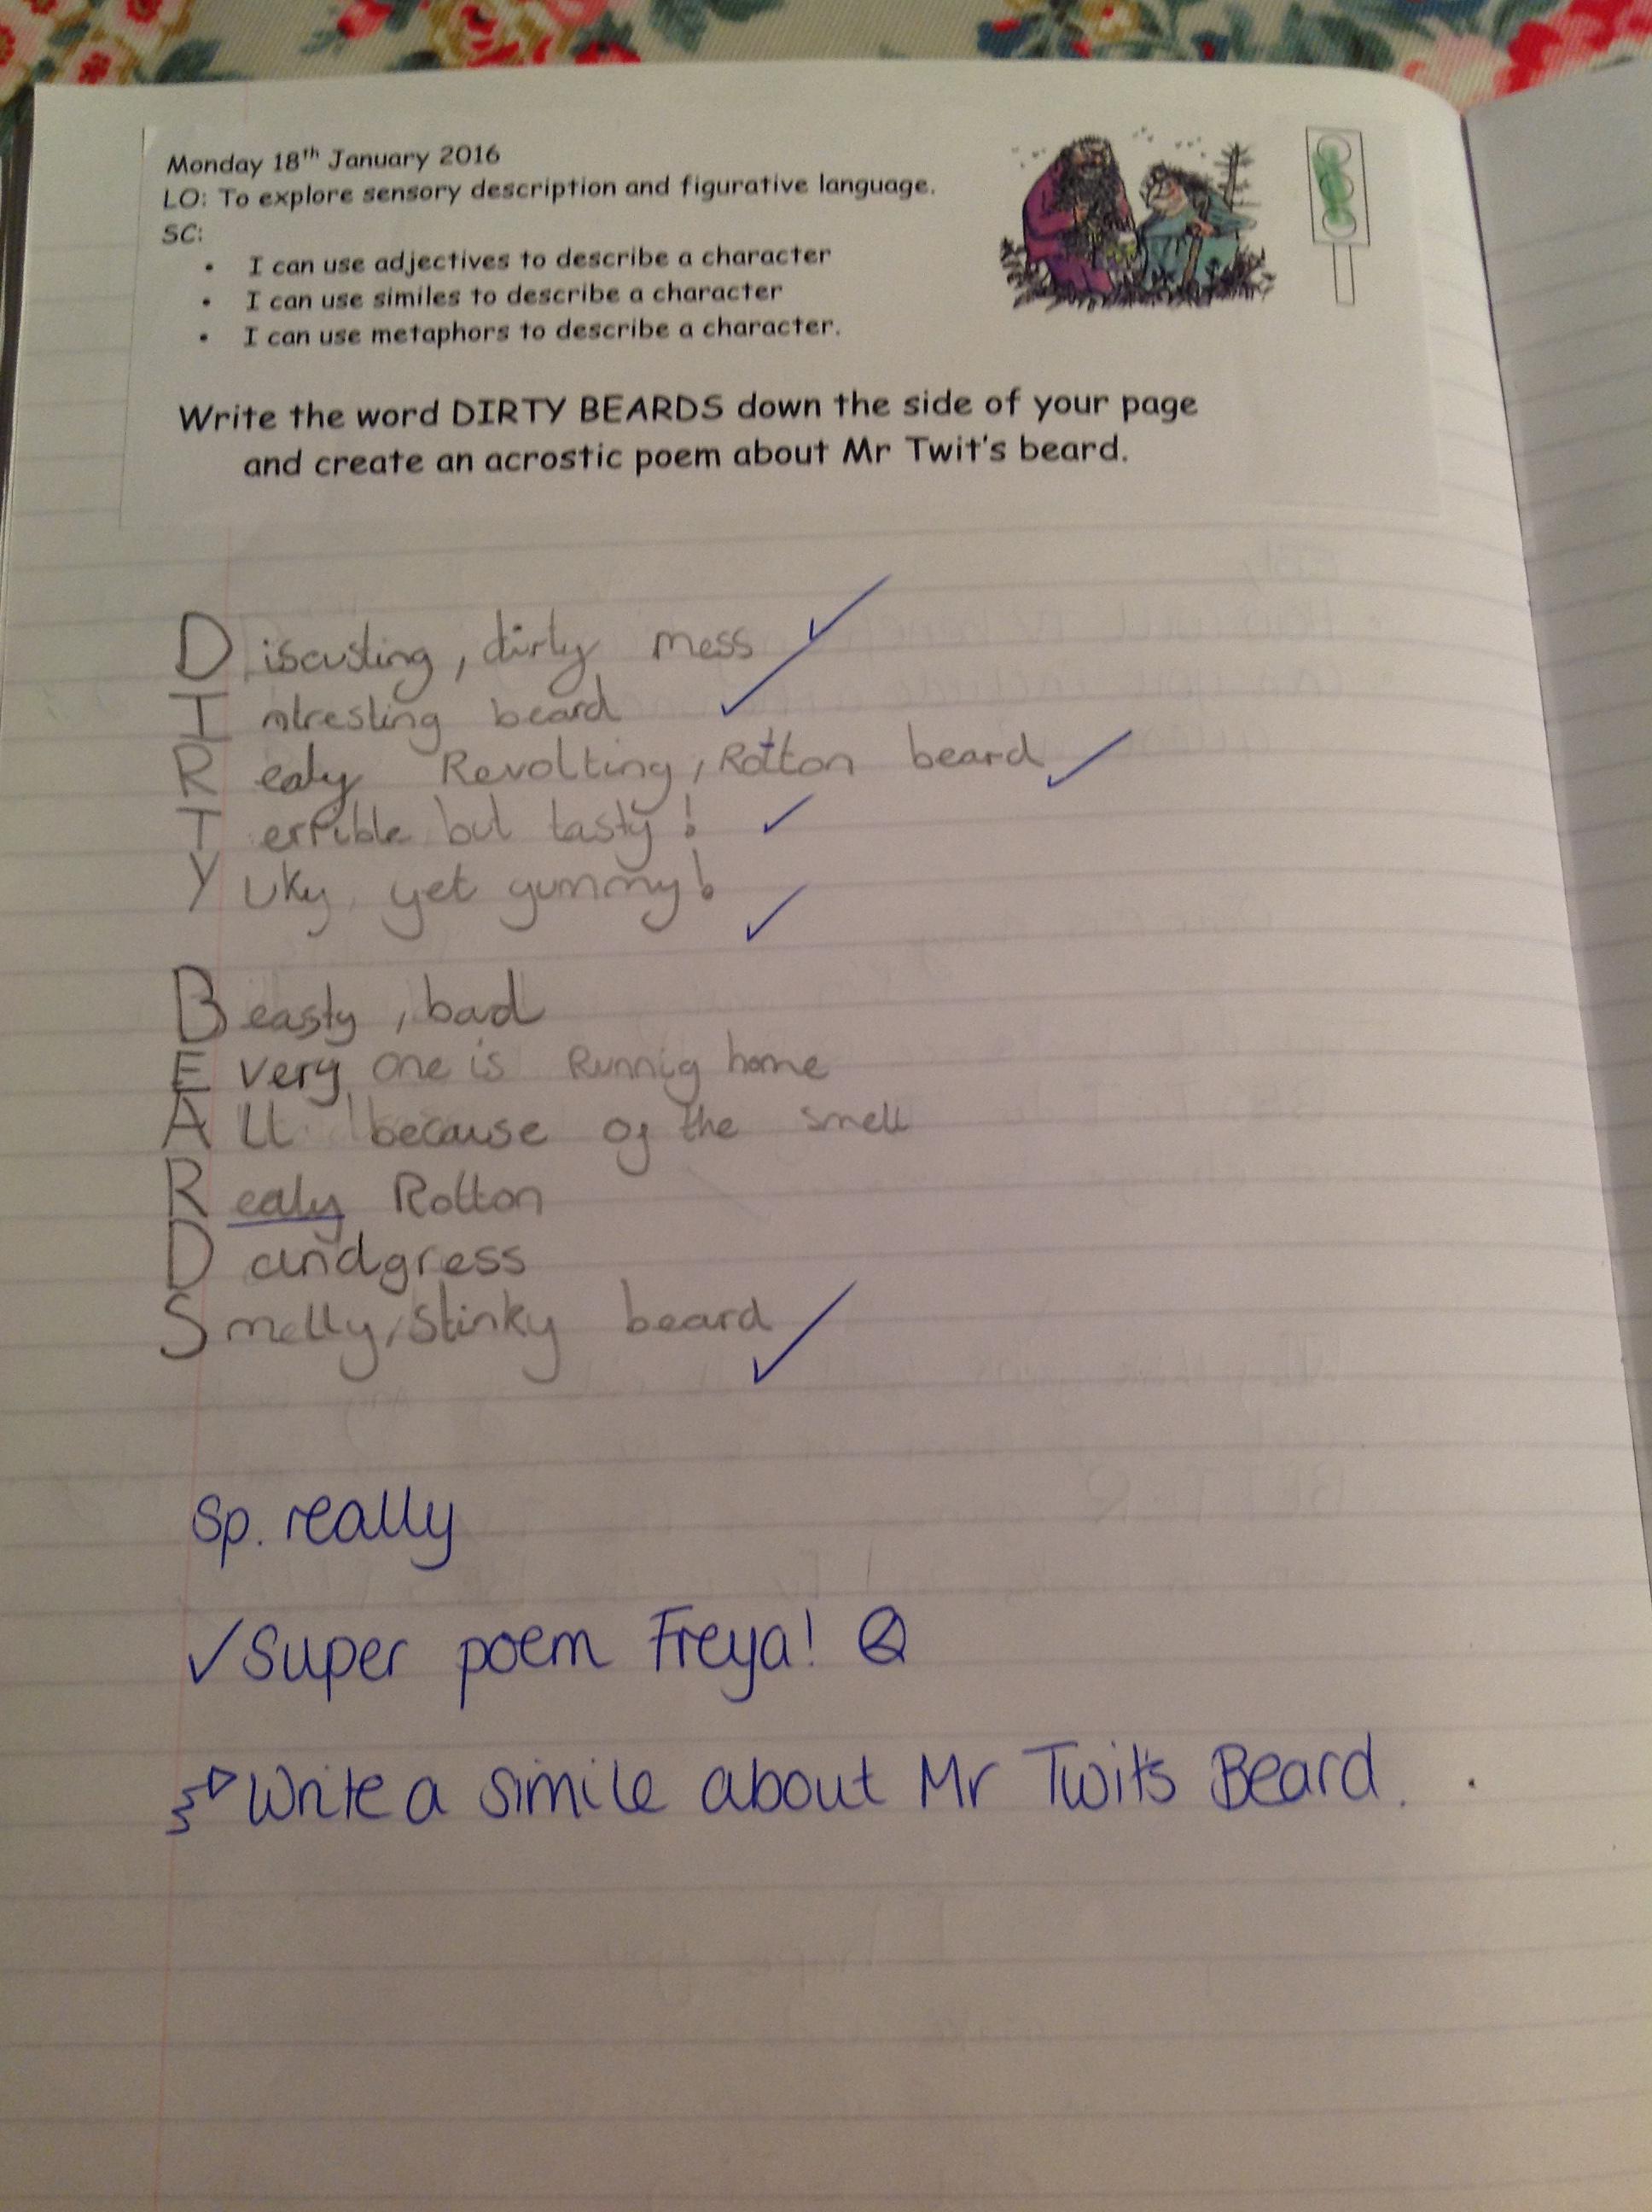 Monday 18th January 2016
LO: To explore sensory description and figurative language.
SC:
• I can use adjectives to describe a character
• I can use similes to describe a character
• I can use metaphors to describe a character.
Write the word DIRTY BEARDS down the side of your page
and create an acrostic poem about Mr Twit's beard.
Discusting, dirty mess
Intresting beard
Realy Revolting, Rotton beard
Terrible but tasty!
Yuky yet yummy!
Beasty, bad
Every one is Runnig home
All because of the smell
Realy Rotton
Dandgress
Smelly, stinky beard
Sp. really
✓ Super poem Freya!
Write a simile about Mr Twit's Beard.